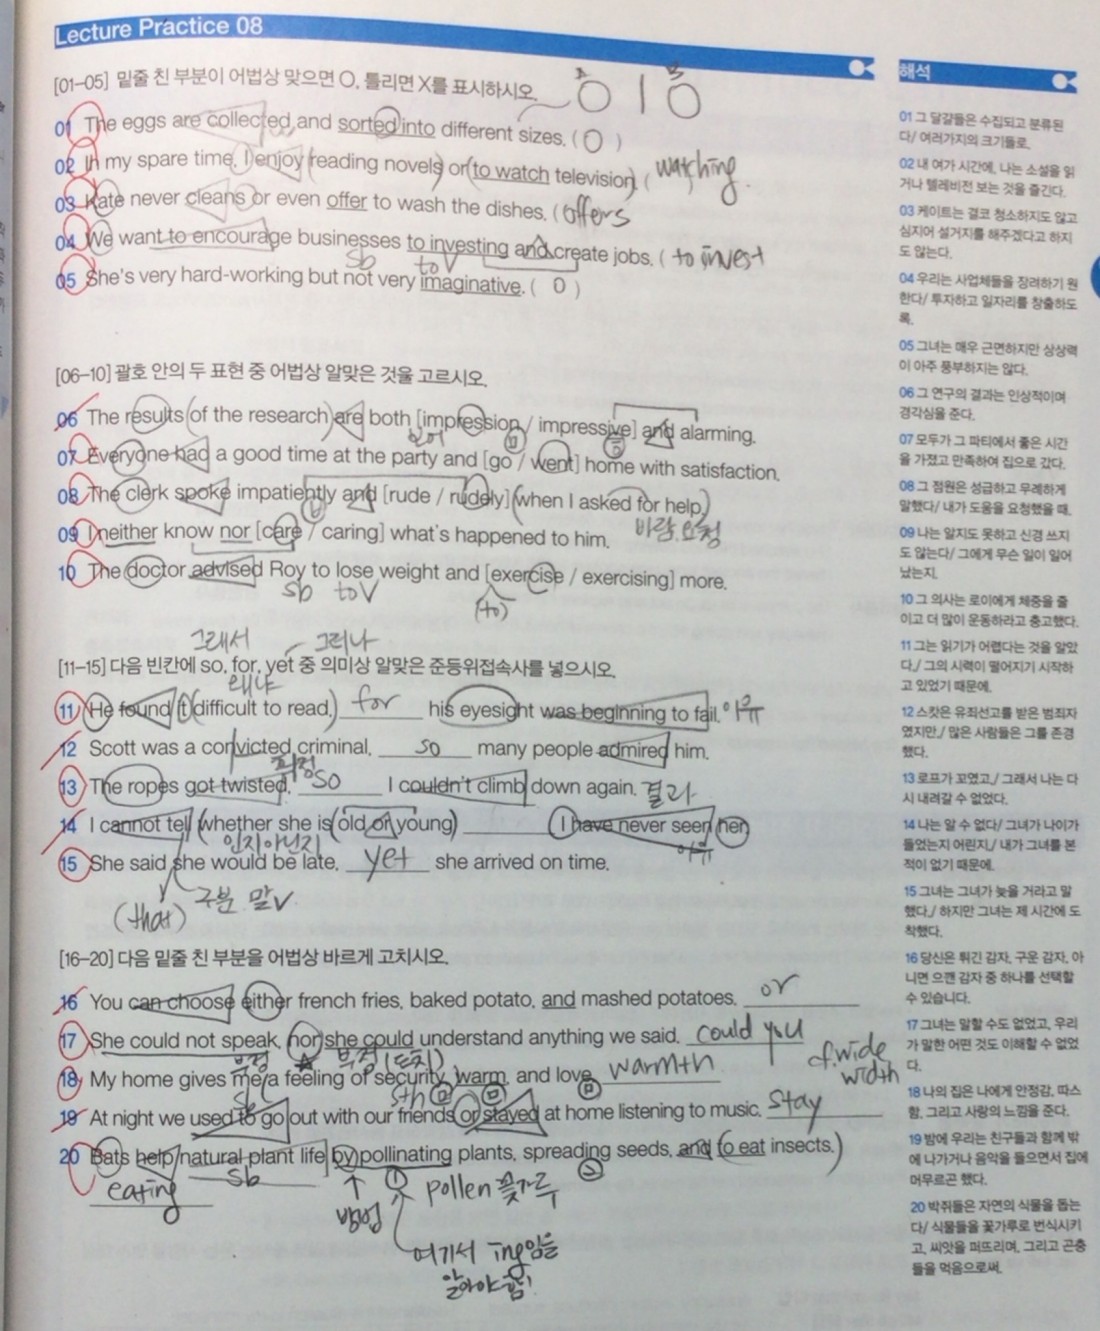 Lecture Practice 08
[01-05] 밑줄 친 부분이 어법상 맞으면 O, 틀리면 X를 표시하시오.
01 The eggs are collected and sorted into different sizes. ( O )
02 In my spare time, I enjoy reading novels or to watch television. ( watching
03 Kate never cleans or even offer to wash the dishes. ( offers
04 We want to encourage businesses to investing and create jobs. ( to invest
sb to V
05 She's very hard-working but not very imaginative. ( O )
[06-10] 괄호 안의 두 표현 중 어법상 알맞은 것을 고르시오.
06 The results of the research are both [impression / impressive] and alarming.
07 Everyone had a good time at the party and [go / went] home with satisfaction.
08 The clerk spoke impatiently and [rude / rudely] when I asked for help.
바람, 요청
09 I neither know nor [care / caring] what's happened to him.
10 The doctor advised Roy to lose weight and [exercise / exercising] more.
sb to V (to)
그래서 그러나
[11-15] 다음 빈칸에 so, for, yet 중 의미상 알맞은 준등위접속사를 넣으시오.
왜냐
11 He found it difficult to read, for his eyesight was beginning to fail. 이유
12 Scott was a convicted criminal, so many people admired him.
13 The ropes got twisted, so I couldn't climb down again. 결과
14 I cannot tell whether she is old or young, I have never seen her.
인지 아닌지 이유
15 She said she would be late, yet she arrived on time.
(that) 구분, 말 V
[16-20] 다음 밑줄 친 부분을 어법상 바르게 고치시오.
16 You can choose either french fries, baked potato, and mashed potatoes. or
17 She could not speak, nor she could understand anything we said. could you
부정 부정 (도치)
18 My home gives me a feeling of security, warm, and love. warmth
cf. wide width
sb sth
19 At night we used to go out with our friends or stayed at home listening to music. stay
20 Bats help natural plant life by pollinating plants, spreading seeds, and to eat insects.
eating sb pollen 꽃가루
방법
여기서 ing임을
알아야 함!
해석
01 그 달걀들은 수집되고 분류된
다/ 여러가지의 크기들로.
02 내 여가 시간에, 나는 소설을 읽
거나 텔레비전 보는 것을 즐긴다.
03 케이트는 결코 청소하지도 않고
심지어 설거지를 해주겠다고 하지
도 않는다.
04 우리는 사업체들을 장려하기 원
한다/ 투자하고 일자리를 창출하도
록.
05 그녀는 매우 근면하지만 상상력
이 아주 풍부하지는 않다.
06 그 연구의 결과는 인상적이며
경각심을 준다.
07 모두가 그 파티에서 좋은 시간
을 가졌고 만족하여 집으로 갔다.
08 그 점원은 성급하고 무례하게
말했다/ 내가 도움을 요청했을 때.
09 나는 알지도 못하고 신경 쓰지
도 않는다/ 그에게 무슨 일이 일어
났는지.
10 그 의사는 로이에게 체중을 줄
이고 더 많이 운동하라고 충고했다.
11 그는 읽기가 어렵다는 것을 알았
다,/ 그의 시력이 떨어지기 시작하
고 있었기 때문에.
12 스캇은 유죄선고를 받은 범죄자
였지만,/ 많은 사람들은 그를 존경
했다.
13 로프가 꼬였고,/ 그래서 나는 다
시 내려갈 수 없었다.
14 나는 알 수 없다/ 그녀가 나이가
들었는지 어린지,/ 내가 그녀를 본
적이 없기 때문에.
15 그녀는 그녀가 늦을 거라고 말
했다,/ 하지만 그녀는 제 시간에 도
착했다.
16 당신은 튀긴 감자, 구운 감자, 아
니면 으깬 감자 중 하나를 선택할
수 있습니다.
17 그녀는 말할 수도 없었고, 우리
가 말한 어떤 것도 이해할 수 없었
다.
18 나의 집은 나에게 안정감, 따스
함, 그리고 사랑의 느낌을 준다.
19 밤에 우리는 친구들과 함께 밖
에 나가거나 음악을 들으면서 집에
머무르곤 했다.
20 박쥐들은 자연의 식물을 돕는
다/ 식물들을 꽃가루로 번식시키
고, 씨앗을 퍼뜨리며, 그리고 곤충
들을 먹음으로써.